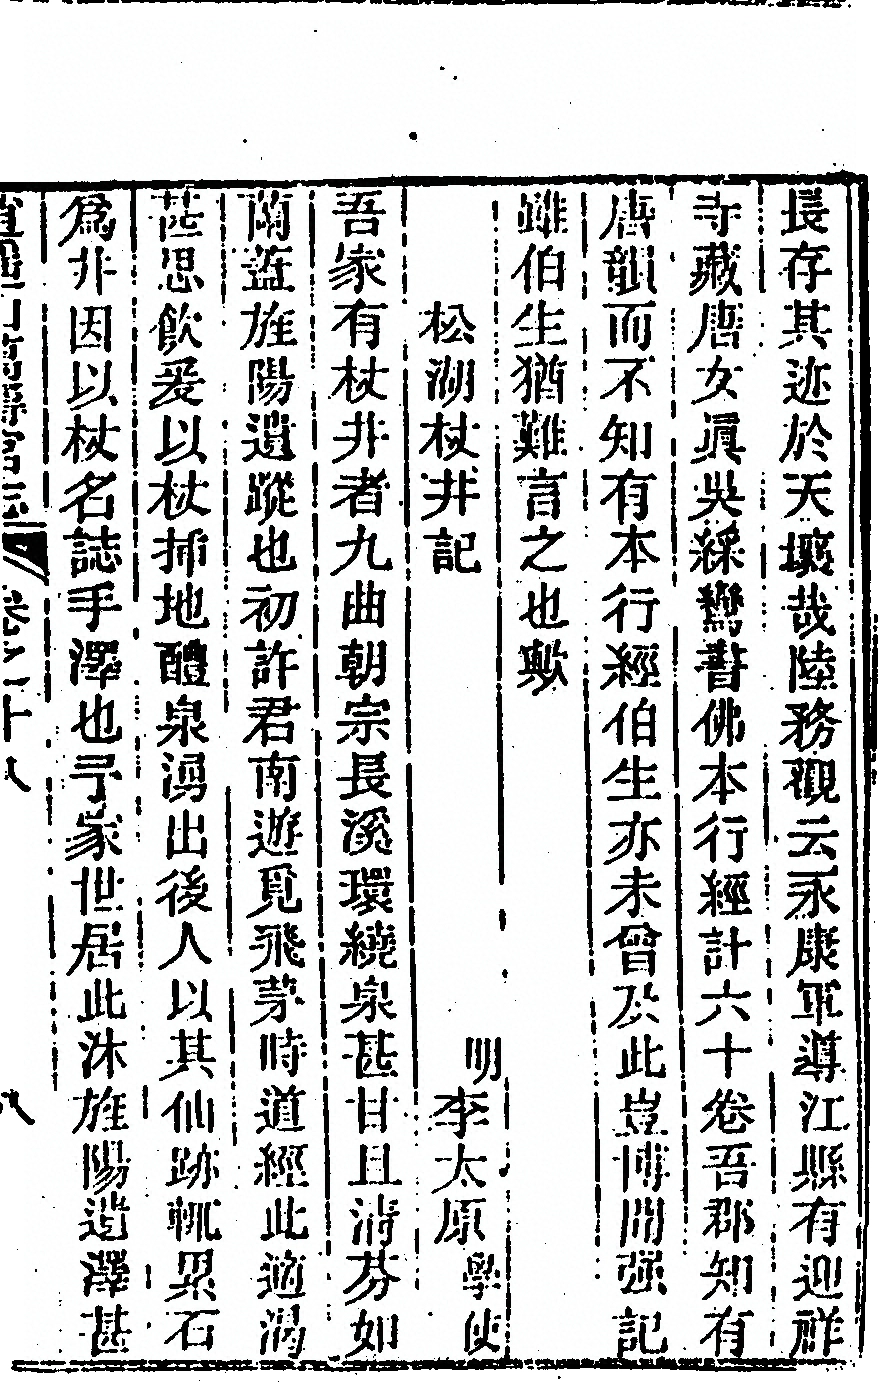 長存其迹於天壤哉陸務觀云永康軍導江縣有迎祥
寺藏唐女眞吳綵鸞書佛本行經計六十卷吾郡知有
唐韻而不知有本行經伯生亦未曾及此豈博聞强記
雖伯生猶難言之也歟
松湖杖井記 明李太原學使
吾家有杖井者九曲朝宗長溪環繞泉甚甘且淸芬如
蘭葢旌陽遺蹤也初許君南遊覓飛茅時道經此適渴
甚思飮爰以杖揷地醴泉湧出後人以其仙跡輒累石
爲井因以杖名誌手澤也予家世居此沐旌陽遺澤甚
逍遙山萬壽宮志 卷之十八 八